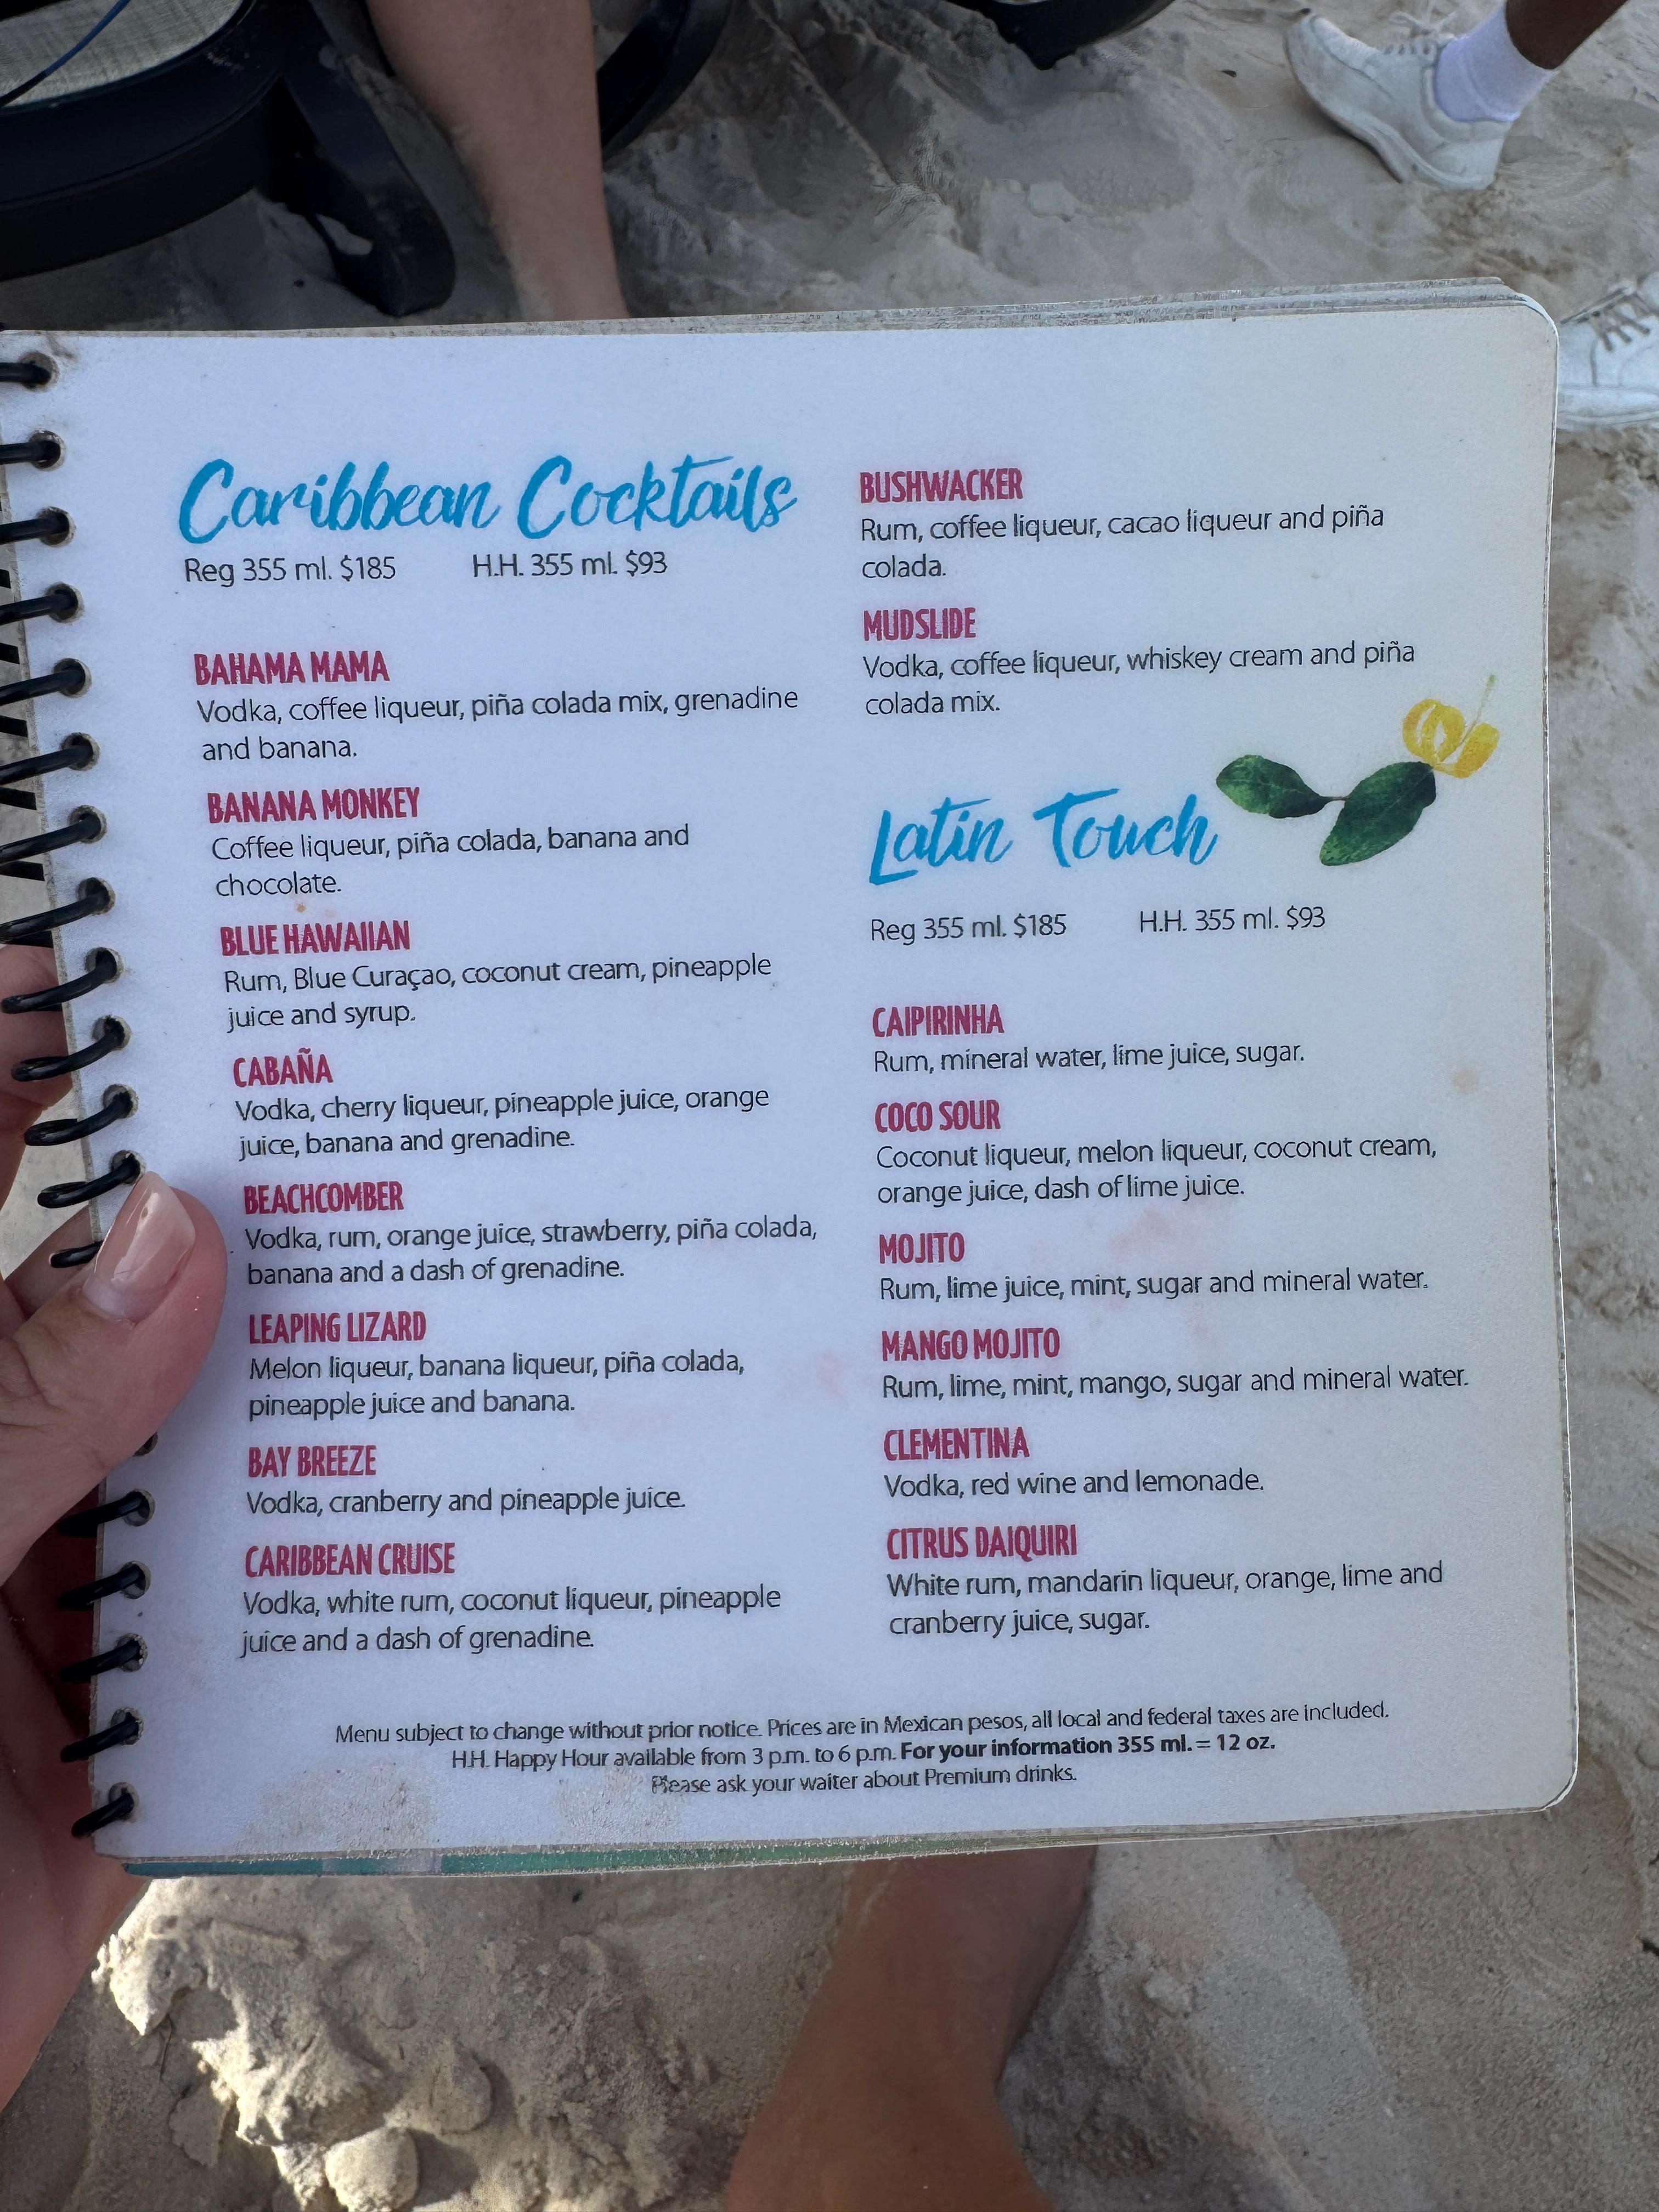 Caribbean Cocktails
Reg 355 ml. $185 H.H. 355 ml. $93
BAHAMA MAMA
Vodka, coffee liqueur, piña colada mix, grenadine
and banana.
BANANA MONKEY
Coffee liqueur, piña colada, banana and
chocolate.
BLUE HAWAIIAN
Rum, Blue Curaçao, coconut cream, pineapple
juice and syrup.
CABAÑA
Vodka, cherry liqueur, pineapple juice, orange
juice, banana and grenadine.
BEACHCOMBER
Vodka, rum, orange juice, strawberry, piña colada,
banana and a dash of grenadine.
LEAPING LIZARD
Melon liqueur, banana liqueur, piña colada,
pineapple juice and banana.
BAY BREEZE
Vodka, cranberry and pineapple juice.
CARIBBEAN CRUISE
Vodka, white rum, coconut liqueur, pineapple
juice and a dash of grenadine.
BUSHWACKER
Rum, coffee liqueur, cacao liqueur and piña
colada.
MUDSLIDE
Vodka, coffee liqueur, whiskey cream and piña
colada mix.
Latin Touch
Reg 355 ml. $185 H.H. 355 ml. $93
CAIPIRINHA
Rum, mineral water, lime juice, sugar.
COCO SOUR
Coconut liqueur, melon liqueur, coconut cream,
orange juice, dash of lime juice.
MOJITO
Rum, lime juice, mint, sugar and mineral water.
MANGO MOJITO
Rum, lime, mint, mango, sugar and mineral water.
CLEMENTINA
Vodka, red wine and lemonade.
CITRUS DAIQUIRI
White rum, mandarin liqueur, orange, lime and
cranberry juice, sugar.
Menu subject to change without prior notice. Prices are in Mexican pesos, all local and federal taxes are included.
H.H. Happy Hour available from 3 p.m. to 6 p.m. For your information 355 ml. = 12 oz.
Please ask your waiter about Premium drinks.